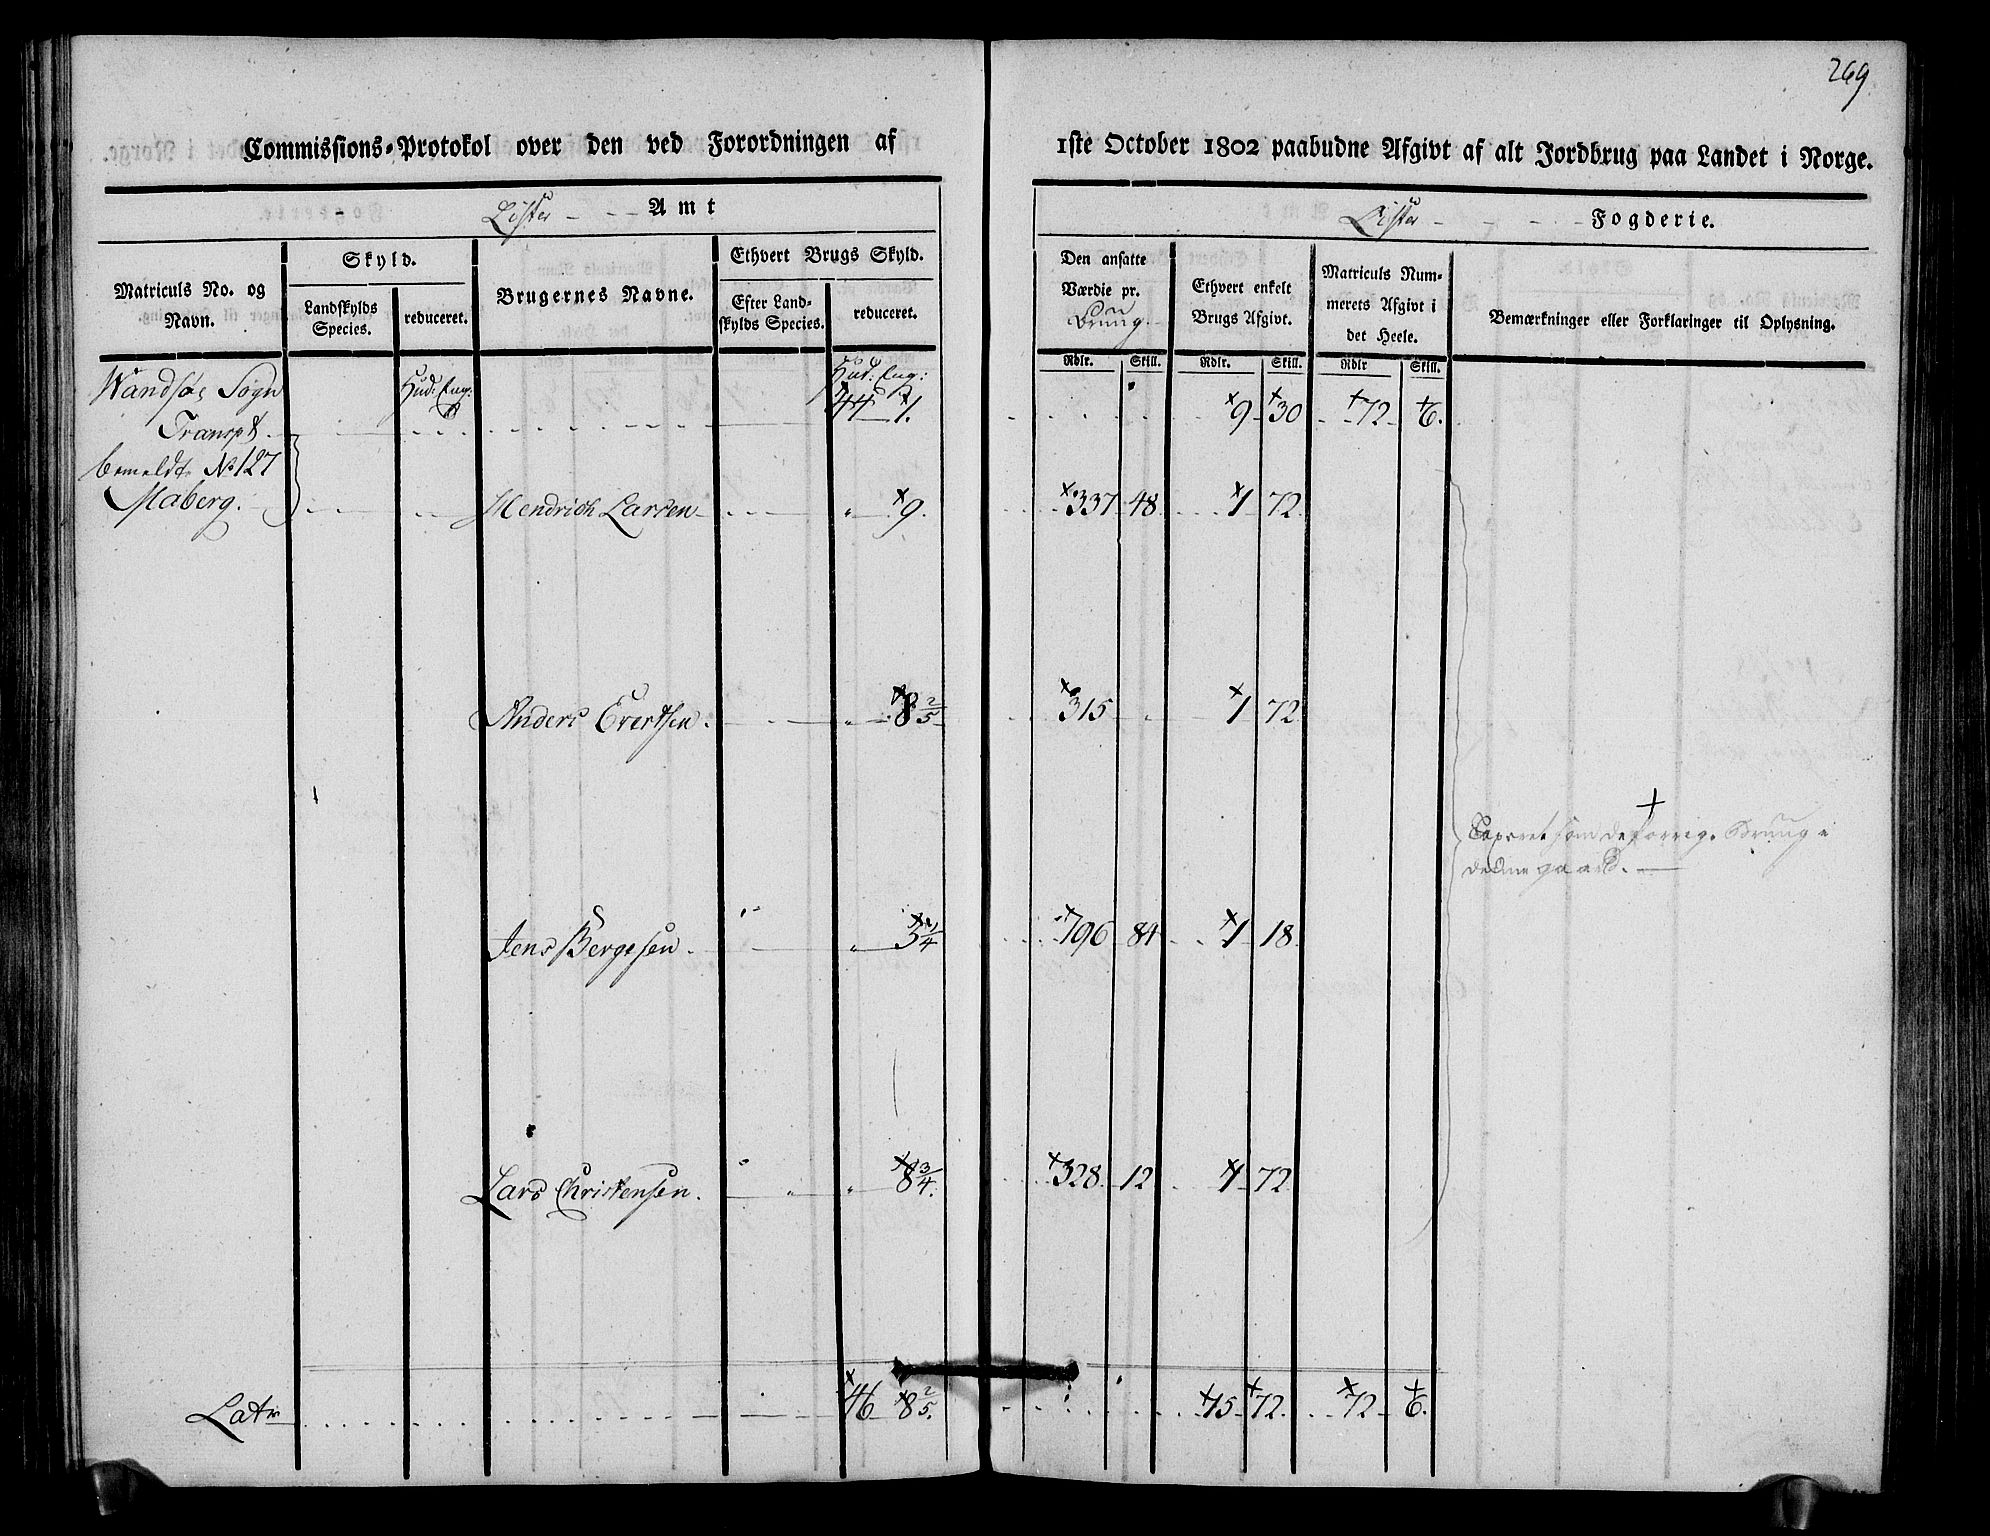 269
Commissions-Protokol over den ved Forordningen af 1ste October 1802 paabudne Afgivt af alt Jordbrug paa Landet i Norge.
Lister Amt
Lister Fogderie.
Matriculs No. og Navn.
Skyld.
Landskylds Species.
reduceret.
Brugernes Navne.
Ethvert Brugs Skyld.
Efter Landskylds Species.
reduceret.
Den ansatte Værdie pr. Bruug.
Rdlr. Skill.
Ethvert enkelt Brugs Afgivt.
Rdlr. Skill.
Matriculs Nummerets Afgivt i det Heele.
Rdlr Skill.
Bemærkninger eller Forklaringer til Oplysning.
Wandsøe Sogn Hud: Eng: Hud: Eng:
Transpt. 44 1. 9 30 72 6.
bemeldte No 127
Maberg. Hendrich Larsen 9. 337 48 1 72
Anders Evertsen. 8 2/5 315 1 72
Taxeret som de forrige Bruug i
denne gaard.
Jens Bergesen 5 1/4 196 84 1 18
Lars Christensen. 8 3/4. 328 12 1 72
Latr 46 8 2/5. 15 72 72 6.